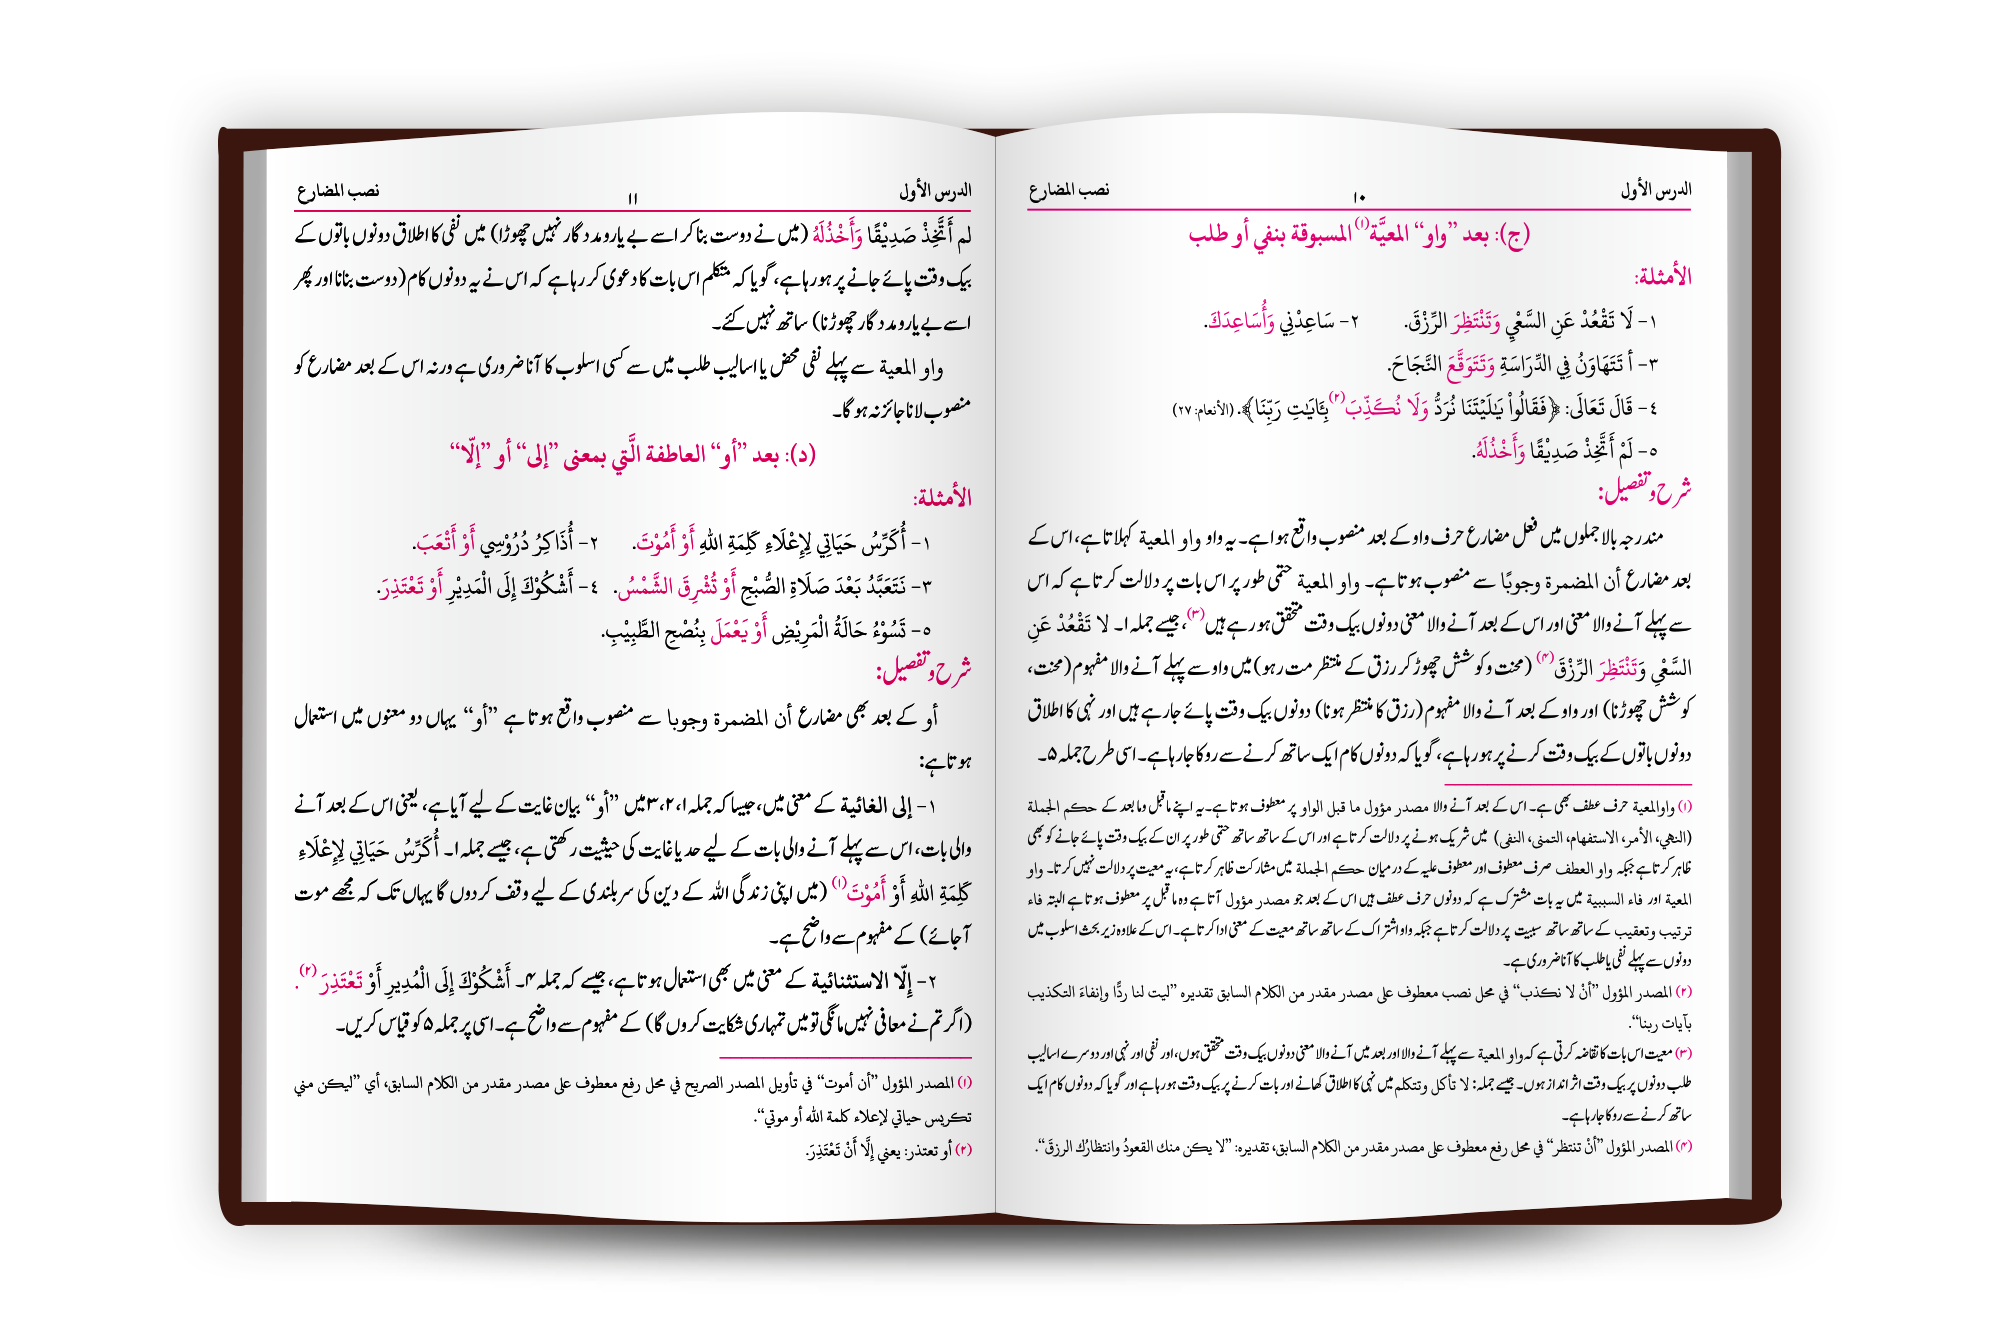 الدرس الأول ۱۰ نصب المضارع
(ج): بعد ”واو“ المعيَّة(۱) المسبوقة بنفي أو طلب
الأمثلة:
١- لَا تَقْعُدْ عَنِ السَّعْيِ وَتَنْتَظِرَ الرِّزْقَ. ٢- سَاعِدْنِي وَأُسَاعِدَكَ.
٣- أ تَتَهَاوَنُ فِي الدِّرَاسَةِ وَتَتَوَقَّعَ النَّجَاحَ.
٤- قَالَ تَعَالَى: ﴿فَقَالُواْ يَٰلَيْتَنَا نُرَدُّ وَلَا نُكَذِّبَ(۲) بِـَٔايَٰتِ رَبِّنَا﴾. (الأنعام: ٢٧)
٥- لَمْ أَتَّخِذْ صَدِيْقًا وَأَخْذُلَهُ.
شرح وتفصیل:
مندرجہ بالا جملوں میں فعل مضارع حرف واو کے بعد منصوب واقع ہوا ہے۔ یہ واو واو المعیة کہلاتا ہے، اس کے
بعد مضارع أن المضمرة وجوبًا سے منصوب ہوتا ہے۔ واو المعية حتمی طور پر اس بات پر دلالت کرتا ہے کہ اس
سے پہلے آنے والا معنی اور اس کے بعد آنے والا معنی دونوں بیک وقت متحقق ہو رہے ہیں(۳)، جیسے جملہ ۱۔ لا تَقْعُدْ عَنِ
السَّعْيِ وَتَنْتَظِرَ الرِّزْقَ(۴) (محنت و کوشش چھوڑ کر رزق کے منتظر مت رہو) میں واو سے پہلے آنے والا مفہوم (محنت،
کوشش چھوڑنا) اور واو کے بعد آنے والا مفہوم (رزق کا منتظر ہونا) دونوں بیک وقت پائے جا رہے ہیں اور نہی کا اطلاق
دونوں باتوں کے بیک وقت کرنے پر ہو رہا ہے، گویا کہ دونوں کام ایک ساتھ کرنے سے روکا جا رہا ہے۔ اسی طرح جملہ ۵۔
(۱) واوالمعية حرف عطف بھی ہے۔ اس کے بعد آنے والا مصدر مؤول ما قبل الواو پر معطوف ہوتا ہے۔ یہ اپنے ما قبل وما بعد کے حكم الجملة
(النهي، الأمر، الاستفهام، التمنى، النفى) میں شریک ہونے پر دلالت کرتا ہے اور اس کے ساتھ ساتھ حتمی طور پر ان کے بیک وقت پائے جانے کو بھی
ظاہر کرتا ہے جبکہ واو العطف صرف معطوف اور معطوف علیہ کے درمیان حكم الجملة میں مشارکت ظاہر کرتا ہے، یہ معیت پر دلالت نہیں کرتا۔ واو
المعية اور فاء السببية میں یہ بات مشترک ہے کہ دونوں حرف عطف ہیں اس کے بعد جو مصدر مؤول آتا ہے وہ ما قبل پر معطوف ہوتا ہے البتہ فاء
ترتیب وتعقیب کے ساتھ ساتھ سببیت پر دلالت کرتا ہے جبکہ واو اشتراک کے ساتھ ساتھ معیت کے معنی ادا کرتا ہے۔ اس کے علاوہ زیر بحث اسلوب میں
دونوں سے پہلے نفی یا طلب کا آنا ضروری ہے۔
(۲) المصدر المؤول ”أنْ لا نكذب“ في محل نصب معطوف على مصدر مقدر من الكلام السابق تقديره ”ليت لنا ردًّا وإنفاءَ التكذيب
بآيات ربنا“.
(۳) معیت اس بات کا تقاضہ کرتی ہے کہ واو المعية سے پہلے آنے والا اور بعد میں آنے والا معنی دونوں بیک وقت متحقق ہوں، اور نفی اور نہی اور دوسرے اسالیب
طلب دونوں پر بیک وقت اثر انداز ہوں۔ جیسے جملہ: لا تأكل وتتكلم میں نہی کا اطلاق کھانے اور بات کرنے پر بیک وقت ہو رہا ہے اور گویا کہ دونوں کام ایک
ساتھ کرنے سے روکا جا رہا ہے۔
(۴) المصدر المؤول ”أنْ تنتظر“ في محل رفع معطوف على مصدر مقدر من الكلام السابق، تقديره: ”لا يكن منك القعودُ وانتظارُك الرزقَ“.
الدرس الأول ۱۱ نصب المضارع
لم أَتَّخِذْ صَدِيْقًا وَأَخْذُلَهُ (میں نے دوست بنا کر اسے بے یارو مددگار نہیں چھوڑا) میں نفی کا اطلاق دونوں باتوں کے
بیک وقت پائے جانے پر ہو رہا ہے، گویا کہ متکلم اس بات کا دعوی کر رہا ہے کہ اس نے یہ دونوں کام (دوست بنانا اور پھر
اسے بے یارو مددگار چھوڑنا) ساتھ نہیں کئے۔
واو المعية سے پہلے نفی محض یا اسالیب طلب میں سے کسی اسلوب کا آنا ضروری ہے ورنہ اس کے بعد مضارع کو
منصوب لانا جائز نہ ہو گا۔
(د): بعد ”أو“ العاطفة الَّتي بمعنى ”إلى“ أو ”إلّا“
الأمثلة:
١- أُكَرِّسُ حَيَاتِي لِإِعْلَاءِ كَلِمَةِ اللهِ أَوْ أَمُوْتَ. ٢- أُذَاكِرُ دُرُوْسِي أَوْ أَتْعَبَ.
٣- نَتَعَبَّدُ بَعْدَ صَلَاةِ الصُّبْحِ أَوْ تُشْرِقَ الشَّمْسُ. ٤- أَشْكُوْكَ إِلَى الْمَدِيْرِ أَوْ تَعْتَذِرَ.
٥- تَسُوْءُ حَالَةُ الْمَرِيْضِ أَوْ يَعْمَلَ بِنُصْحِ الطَّبِيْبِ.
شرح وتفصیل:
أو کے بعد بھی مضارع أن المضمرة وجوبا سے منصوب واقع ہوتا ہے ”أو“ یہاں دو معنوں میں استعمال
ہوتا ہے:
۱- إلى الغائية کے معنی میں، جیسا کہ جملہ ۱، ۲، ۳ میں ”أو“ بیان غایت کے لیے آیا ہے، یعنی اس کے بعد آنے
والی بات، اس سے پہلے آنے والی بات کے لیے حد یا غایت کی حیثیت رکھتی ہے، جیسے جملہ ۱۔ أُكَرِّسُ حَيَاتِي لِإِعْلَاءِ
كَلِمَةِ اللهِ أَوْ أَمُوْتَ(۱) (میں اپنی زندگی اللہ کے دین کی سربلندی کے لیے وقف کردوں گا یہاں تک کہ مجھے موت
آجائے) کے مفہوم سے واضح ہے۔
۲- إلّا الاستثنائية کے معنی میں بھی استعمال ہوتا ہے، جیسے کہ جملہ ۴۔ أَشْكُوْكَ إِلَى الْمُدِيرِ أَوْ تَعْتَذِرَ(۲).
(اگر تم نے معافی نہیں مانگی تو میں تمہاری شکایت کروں گا) کے مفہوم سے واضح ہے۔ اسی پر جملہ ۵ کو قیاس کریں۔
(۱) المصدر المؤول ”أن أموت“ في تأويل المصدر الصريح في محل رفع معطوف على مصدر مقدر من الكلام السابق، أي ”ليكن مني
تكريس حياتي لإعلاء كلمة الله أو موتي“.
(۲) أو تعتذر: يعني إِلَّا أَنْ تَعْتَذِرَ.